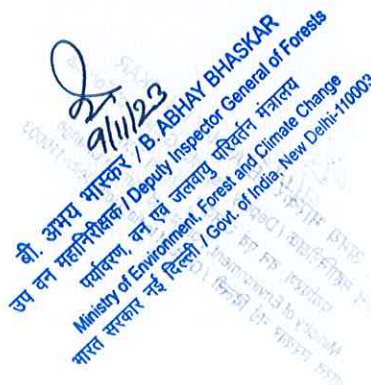 9/11/23
बी. अभय भास्कर / B. ABHAY BHASKAR
उप वन महानिरीक्षक / Deputy Inspector General of Forests
पर्यावरण, वन एवं जलवायु परिवर्तन मंत्रालय
Ministry of Environment, Forest and Climate Change
भारत सरकार नई दिल्ली / Govt. of India, New Delhi-110003